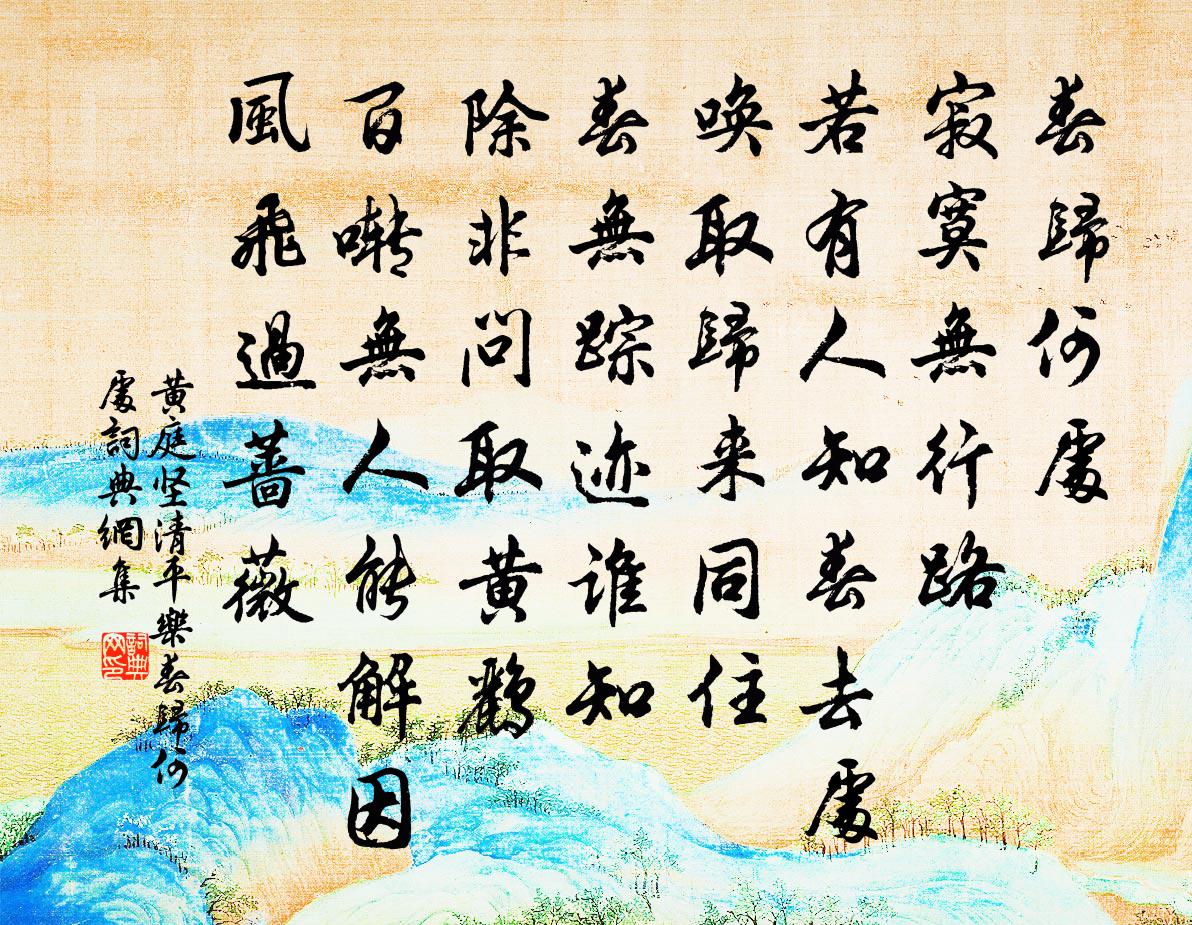 春歸何處
寂寞無行路
若有人知春去處
喚取歸来同住
春無踪迹誰知
除非問取黄鸝
百囀無人能解因
風飛過薔薇
黄庭坚清平樂春歸何
處詞典網集
詞典
网印